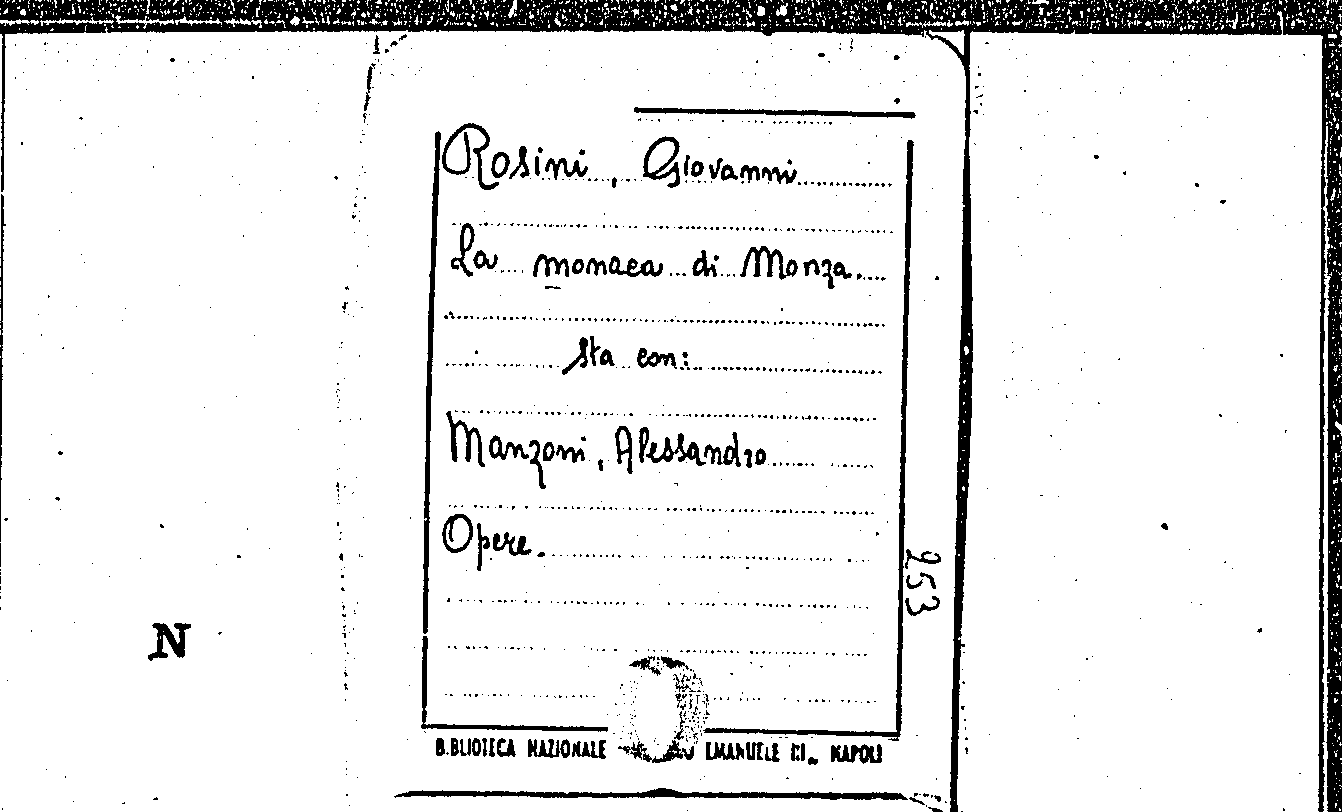 Rosini, Giovanni
La monaca di Monza.
sta con:
Manzoni, Alessandro
Opere.
253
N
BIBLIOTECA NAZIONALE EMANUELE III NAPOLI